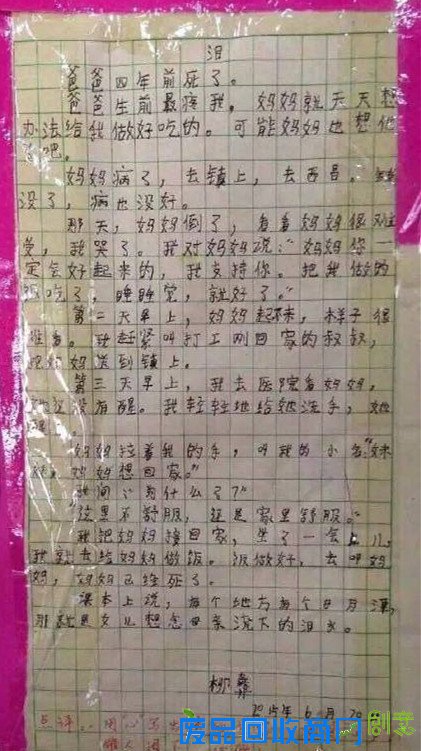 泪
爸爸四年前死了。
爸爸生前最疼我,妈妈就天天想
办法给我做好吃的。可能妈妈也想他
了吧。
妈妈病了,去镇上,去西昌。钱
没了,病也没好。
那天,妈妈倒了,看看妈妈很难
受,我哭了。我对妈妈说:“妈妈你一
定会好起来的,我支持你。把我做的
饭吃了,睡睡觉,就好了。”
第二天早上,妈妈起不来,样子很
难看。我赶紧叫打工刚回家的叔叔,
把妈妈送到镇上。
第三天早上,我去医院看妈妈,
她还没有醒。我轻轻地给她洗手,她
醒了。
妈妈拉着我的手,叫我的小名:“妹
妹,妈妈想回家。”
我问:“为什么了?”
“这里不舒服,还是家里舒服。”
我把妈妈接回家,坐了一会儿,
我就去给妈妈做饭。饭做好,去叫妈
妈,妈妈已经死了。
课本上说,每个地方每个日月潭,
那就是女儿想念母亲流下的泪水。
柳彝
2015年6月20
点评:用心写
废品回收商网
创意